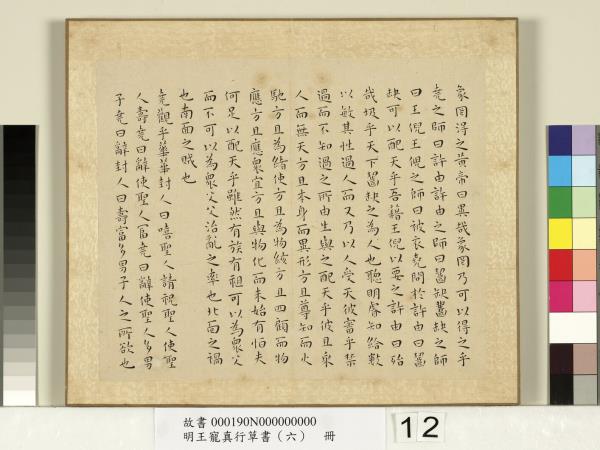 象罔得之黃帝曰異哉象罔乃可以得之乎
堯之師曰許由許由之師曰齧缺齧缺之師
曰王倪王倪之師曰被衣堯問於許由曰齧
缺可以配天乎吾藉王倪以要之許由曰殆
哉圾乎天下齧缺之為人也聰明睿知給數
以敏其性過人而又乃以人受天彼審乎禁
過而不知過之所由生與之配天乎彼且乘
人而無天方且本身而異形方且尊知而火
馳方且為緒使方且為物絯方且四顧而物
應方且應衆宜方且與物化而未始有恒夫
何足以配天乎雖然有族有祖可以為衆父
而不可以為衆父父治亂之率也北面之禍
也南面之賊也
堯觀乎華華封人曰嘻聖人請祝聖人使聖
人壽堯曰辭使聖人富堯曰辭使聖人多男
子堯曰辭封人曰壽富多男子人之所欲也
故書 000190N000000000
明王寵真行草書（六） 冊
12